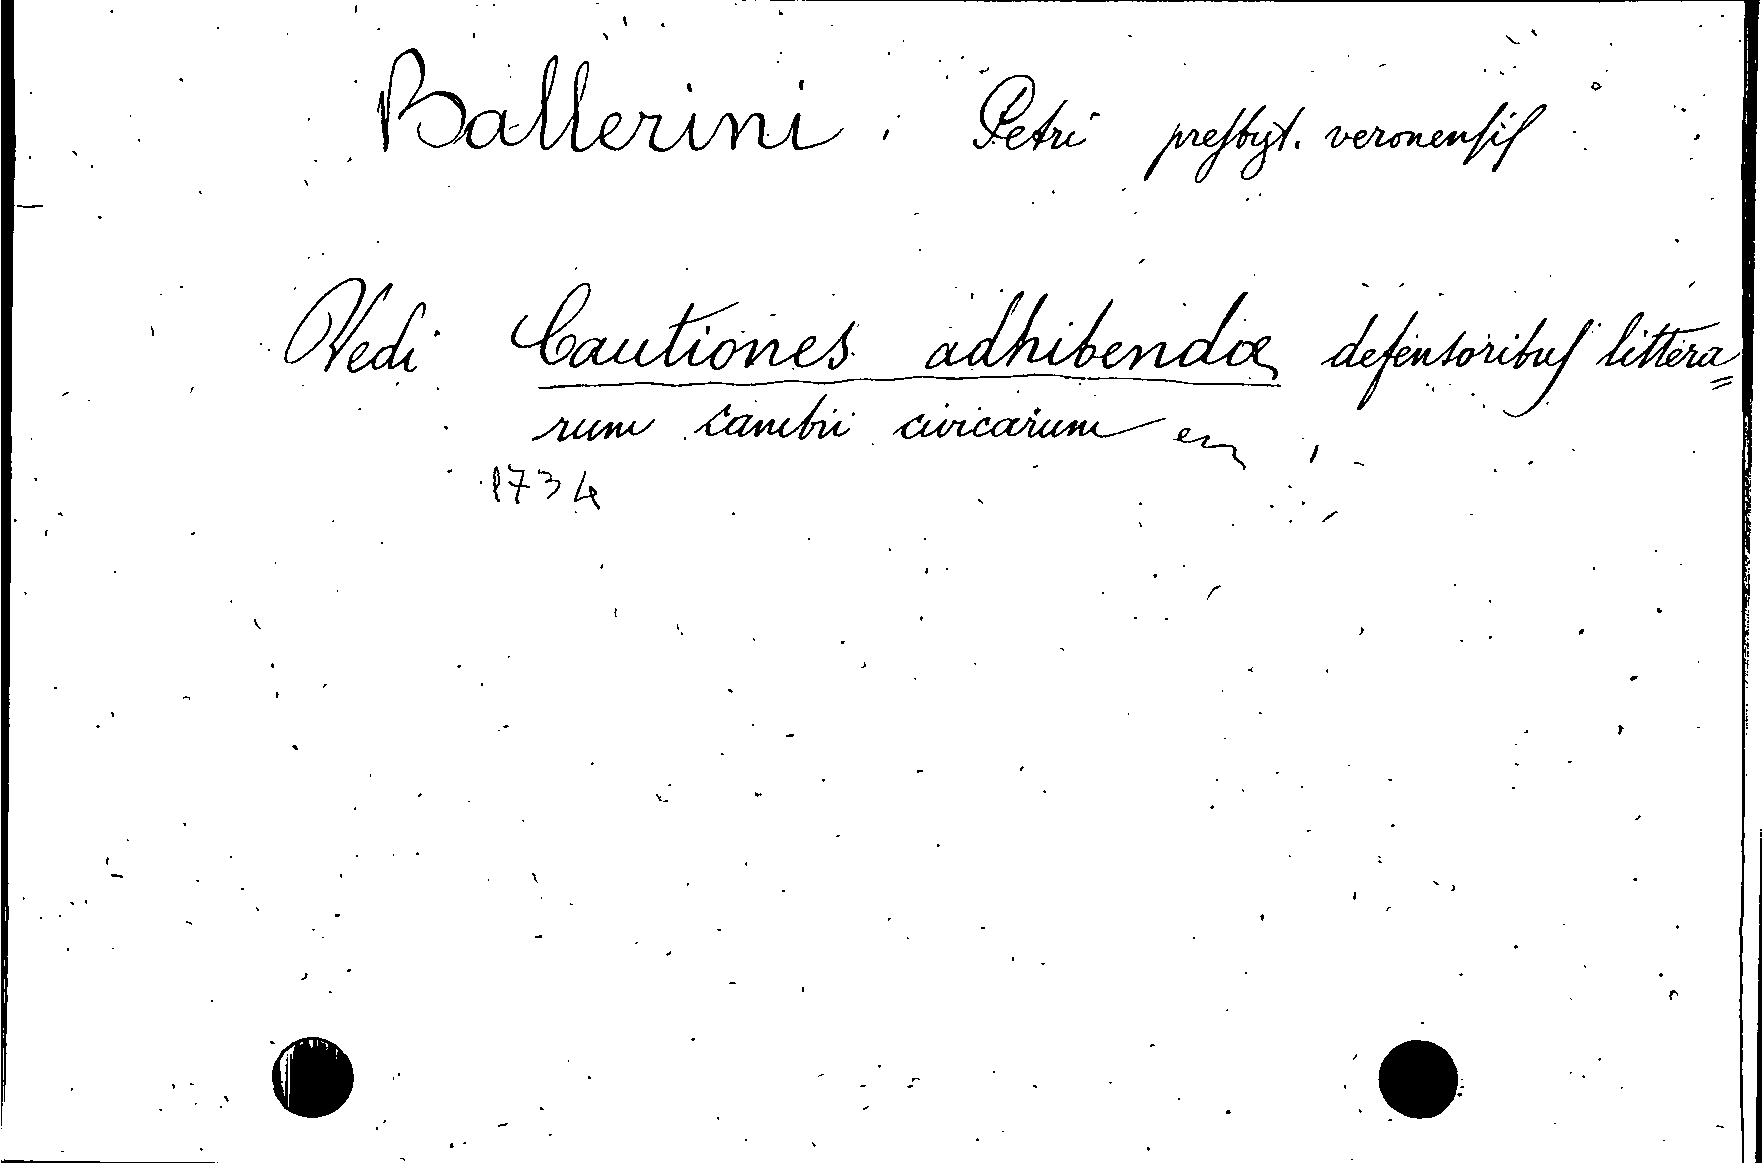 Ballerini. Petri presbyt. veronensis
Vedi Cautiones adhibendæ defensoribus littera=
rum cambii civicarum
1734